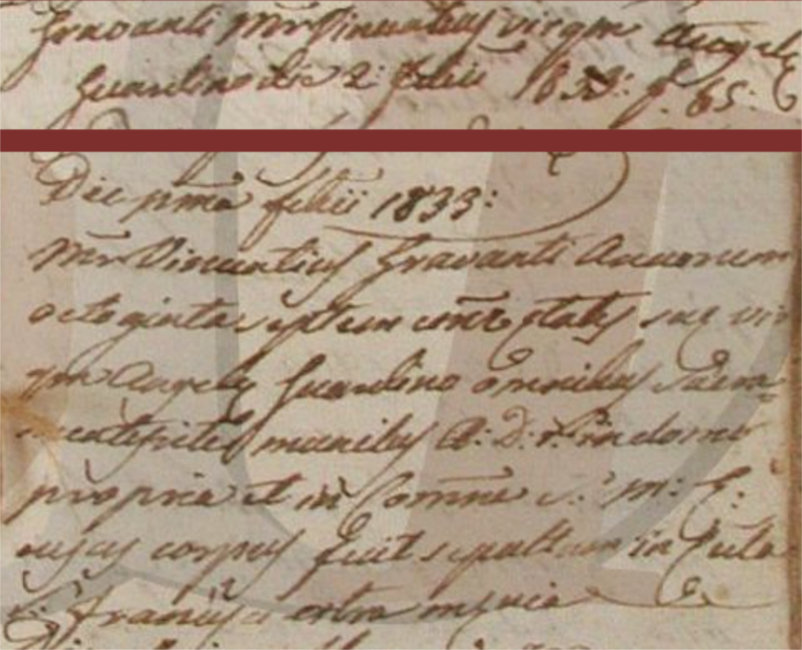 Gravanti Mr Vincentius virqm Angele
Guardino die 2: febrii 1833: f. 65:
Die pma febrii 1833:
Mr Vincentius Gravanti Annorum
octoginta septem cirr etatis sue vir
qm Angele Guardino omnibus Sacra
mentis munitus A: D: r: in domo
propria et in Comne S: M: E:
cujus corpus fuit sepultum in Eccla
S: Francisci extra menia